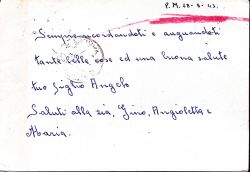 P.M. 28-8-43.
Sempre ricordandoti e augurandoti
tante belle cose ed una buona salute
tuo figlio Angelo
Saluti alla zia, Gino, Angioletta e
Maria.